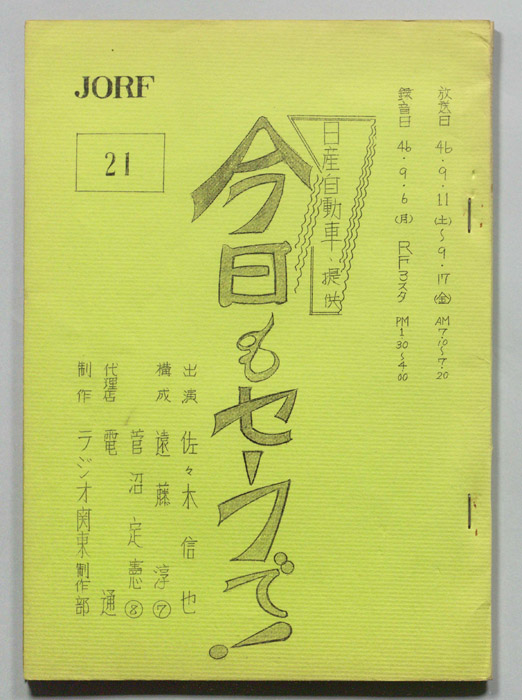 JORF
21
放送日 46・9・11(土)〜9・17(金) AM7:10〜7:20
録音日 46・9・6(月) RF3スタ PM1:30〜4:00
日産自動車・提供
今日もセーフで!
出演 佐々木信也
構成 遠藤淳⑦
菅沼定憲⑧
代理店 電通
制作 ラジオ関東制作部